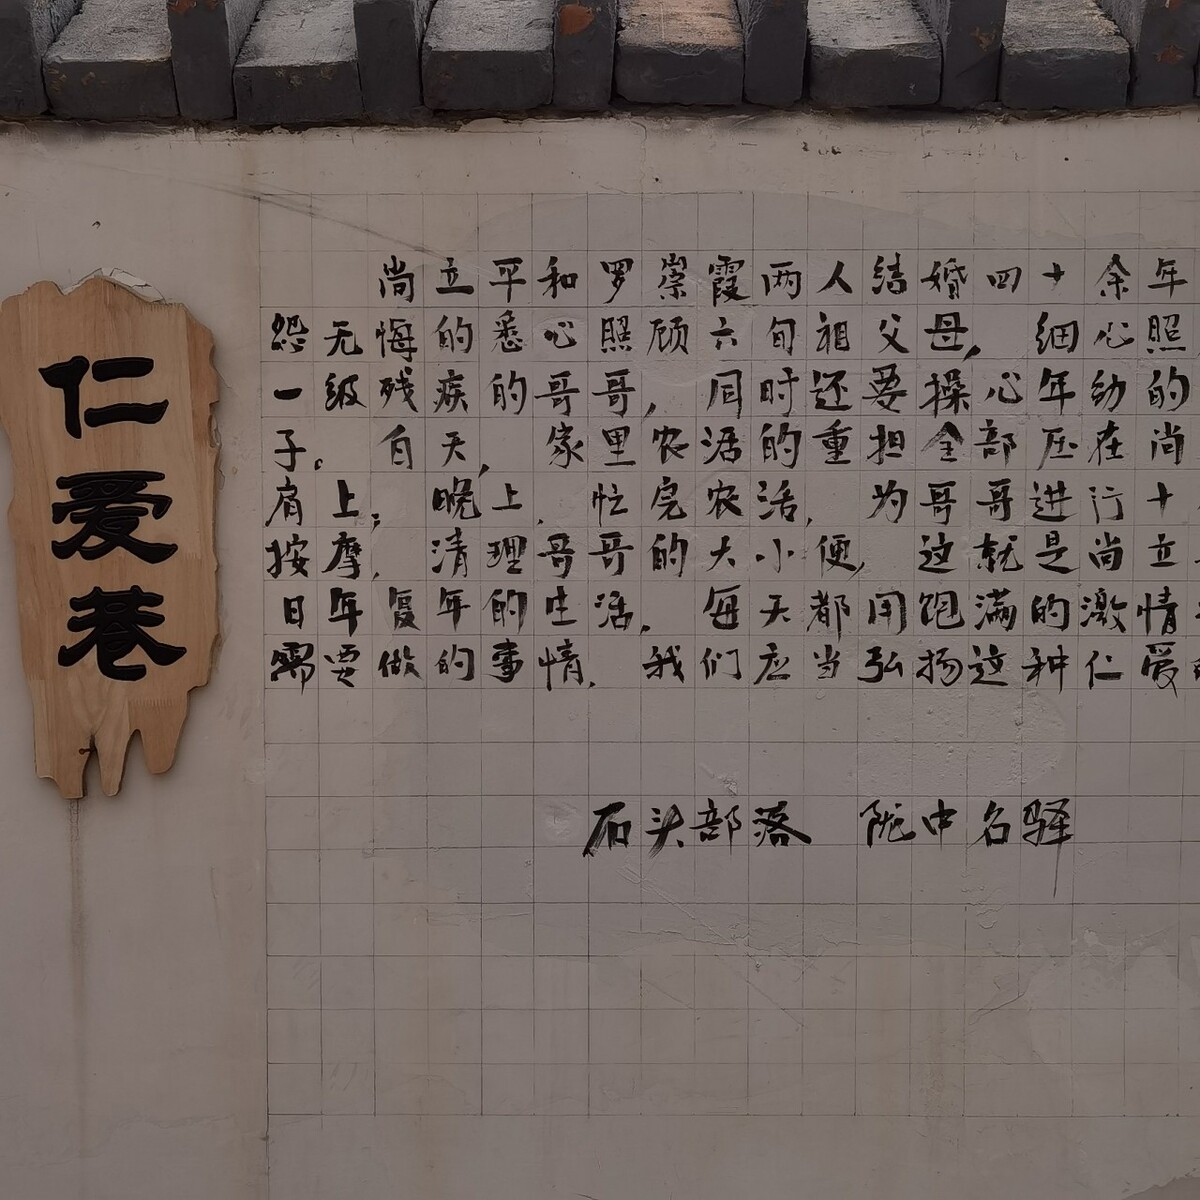 仁爱巷
尚立平和罗崇霞两人结婚四十余年
怨无悔的悉心照顾六旬祖父母，细心照
一级残疾的哥哥，同时还要操心年幼的
子。白天，家里农活的重担全部压在尚
肩上；晚上，忙完农活，为哥哥进行十
按摩，清理哥哥的大小便，这就是尚立
日年复年的生活。每天都用饱满的激情
需要做的事情。我们应当弘扬这种仁爱
石头部落 陇中名驿